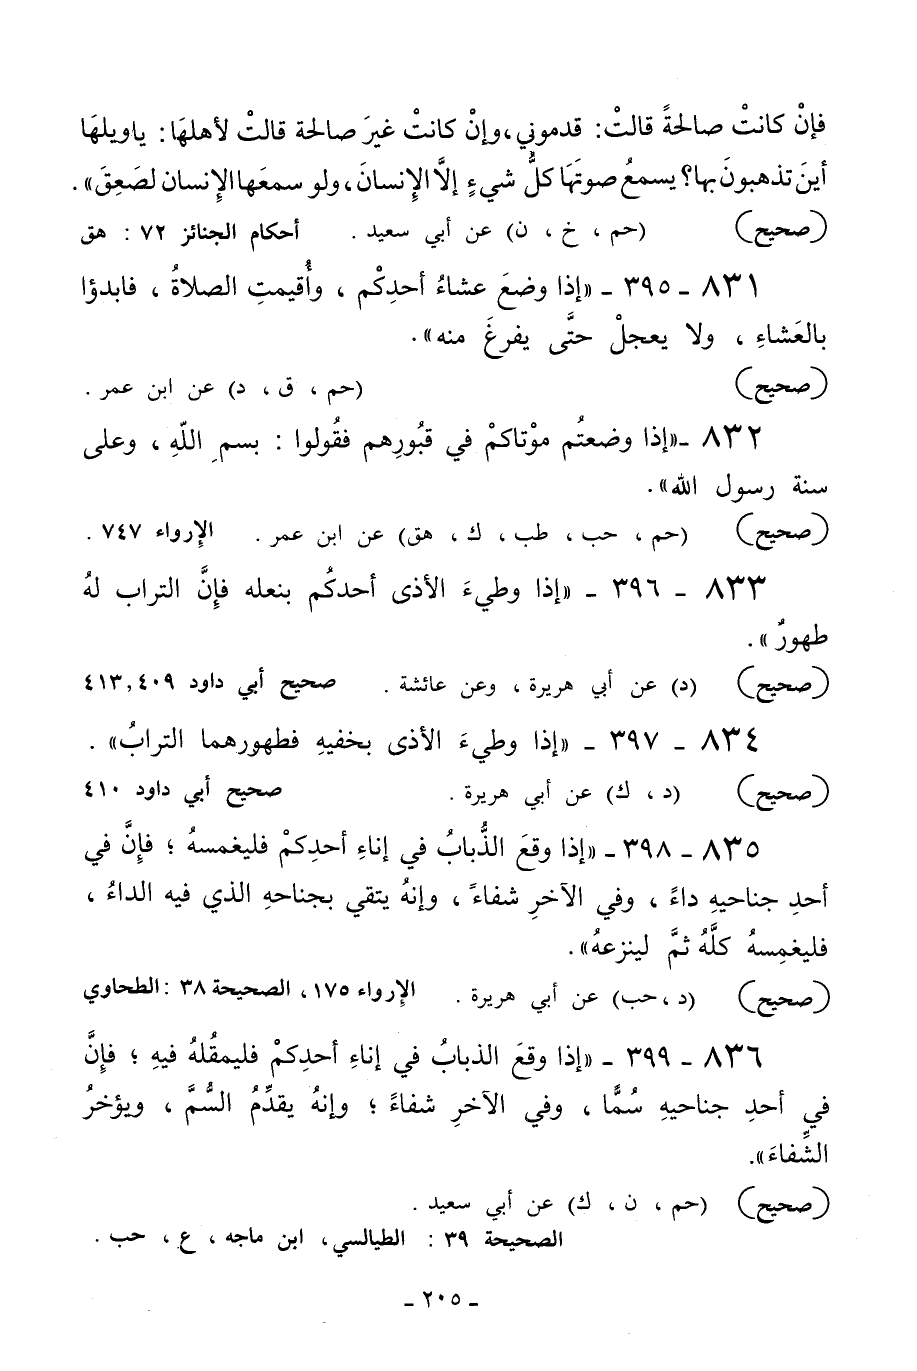 فإنْ كانتْ صالحةً قالتْ: قدموني،وإنْ كانتْ غيرَ صالحة قالتْ لأهلهَا: ياويلهَا
أينَ تذهبونَ بها؟ يسمعُ صوتَهَا كلُّ شيءٍ إلَّا الإِنسانَ، ولو سمعَها الإِنسان لصَعِقَ».
(صحيح) (حم ، خ ، ن) عن أبي سعيد . أحكام الجنائز ٧٢ : هق
٨٣١ ـ ٣٩٥ ـ «إذا وضعَ عشاءُ أحدِكْم ، وأُقيمتِ الصلاةُ ، فابدؤا
بالعَشاءِ ، ولا يعجلْ حتَّى يفرغَ منه».
(صحيح) (حم ، ق ، د) عن ابن عمر .
٨٣٢ ـ«إذا وضعتُم موْتاكمْ في قبُورِهم فقُولوا : بسمِ اللّهِ ، وعلى
سنة رسول الله».
(صحيح) (حم ، حب ، طب ، ك ، هق) عن ابن عمر . الإرواء ٧٤٧ .
٨٣٣ ـ ٣٩٦ ـ «إذا وطيءَ الأذى أحدكُم بنعله فإنَّ التراب لهُ
طهورٌ».
(صحيح) (د) عن أبي هريرة ، وعن عائشة . صحيح أبي داود ٤١٣,٤٠٩
٨٣٤ ـ ٣٩٧ ـ «إذا وطيءَ الأذى بخفيهِ فطهورهما الترابُ» .
(صحيح) (د ، ك) عن أبي هريرة . صحيح أبي داود ٤١٠
٨٣٥ ـ ٣٩٨ ـ «إذا وقعَ الذُّبابُ في إناءِ أحدِكمْ فليغمسهُ ؛ فإنَّ في
أحدِ جناحيهِ داءً ، وفي الآخرِ شفاءً ، وإنهُ يتقي بجناحهِ الذي فيه الداءُ ،
فليغمِسهُ كلَّهُ ثمَّ لينزعهُ».
(صحيح) (د ،حب) عن أبي هريرة . الإرواء ١٧٥ ، الصحيحة ٣٨ :الطحاوي
٨٣٦ ـ ٣٩٩ ـ «إذا وقعَ الذبابُ في إناءِ أحدِكمْ فليمقُلهُ فيهِ ؛ فإنَّ
في أحدِ جناحيهِ سُمًّا ، وفي الآخرِ شفاءً ؛ وإنهُ يقدِّمُ السُّمَّ ، ويؤخرُ
الشِّفاءَ».
(صحيح) (حم ، ن ، ك) عن أبي سعيد .
الصحيحة ٣٩ : الطيالسي ، ابن ماجه ، ع ، حب .
ـ ٢٠٥ ـ